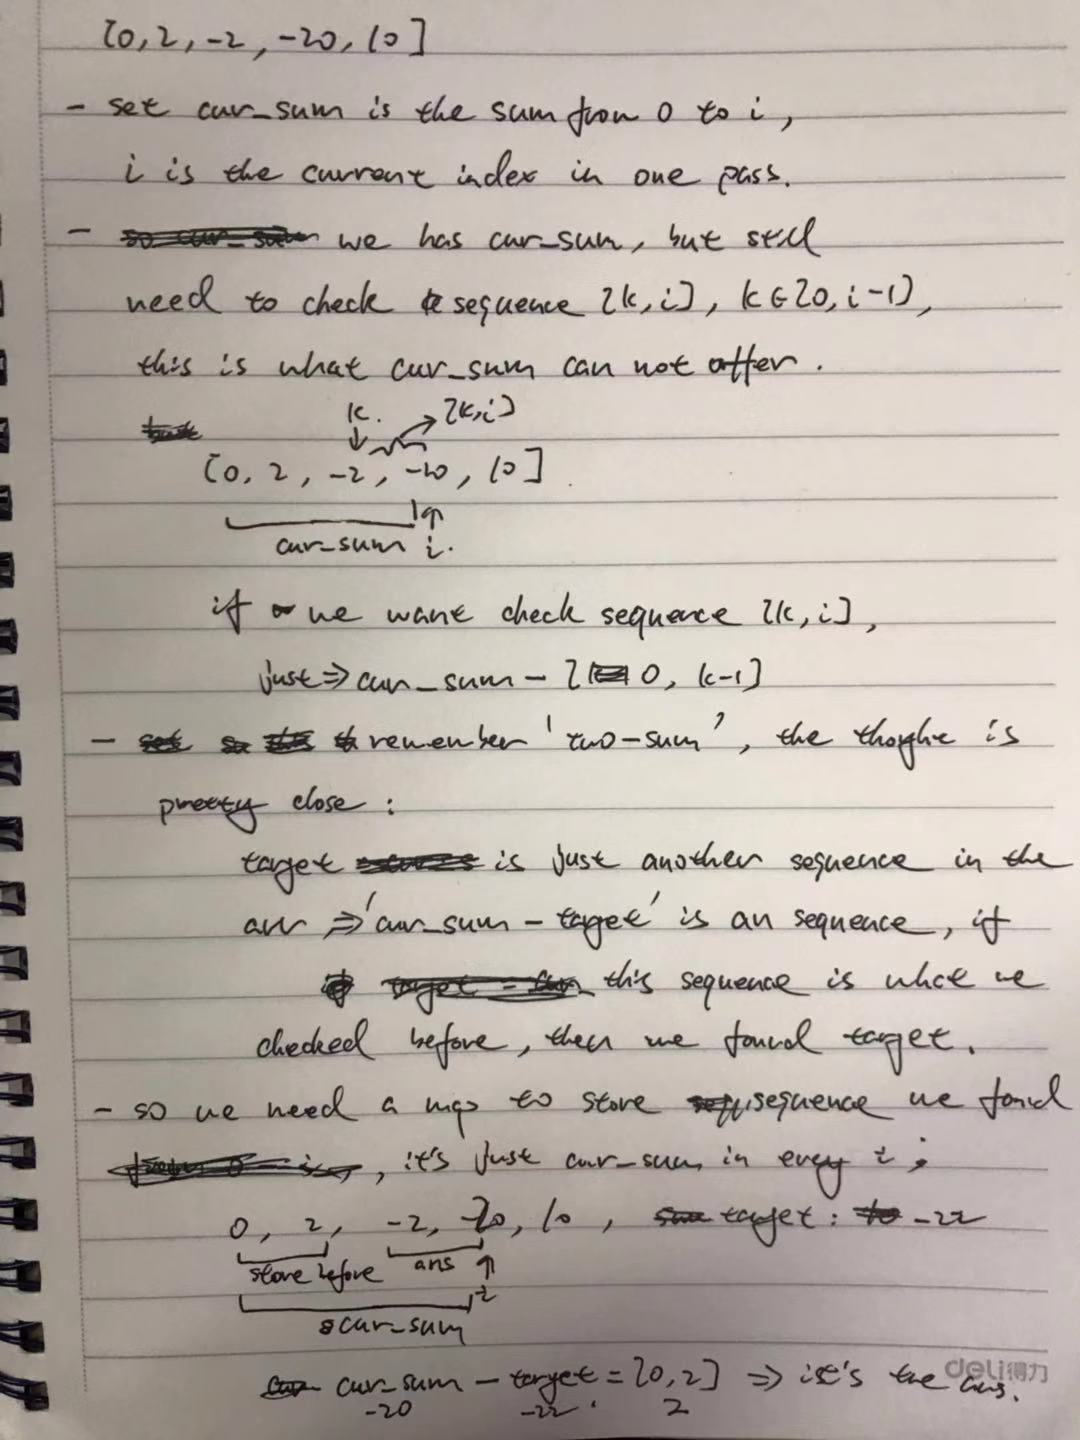 [0, 2, -2, -20, 10]
- set cur_sum is the sum from 0 to i,
i is the current index in one pass.
- we has cur_sum, but still
need to check sequence [k, i], k∈[0, i-1],
this is what cur_sum can not offer.
k. [k, i]
[0, 2, -2, -20, 10]
cur_sum i.
if we want check sequence [k, i],
just ⇒ cur_sum - [0, k-1]
- remember 'two-sum', the thoghe is
pretty close :
target is just another sequence in the
arr ⇒ 'cur_sum - target' is an sequence, if
this sequence is what we
checked before, then we found target.
- so we need a map to store sequence we found
, it's just cur_sum in every i ;
0, 2, -2, -20, 10, target: -22
store before ans i
cur_sum
cur_sum - target = [0, 2] ⇒ it's the ans.
-20 -22 2
deli得力